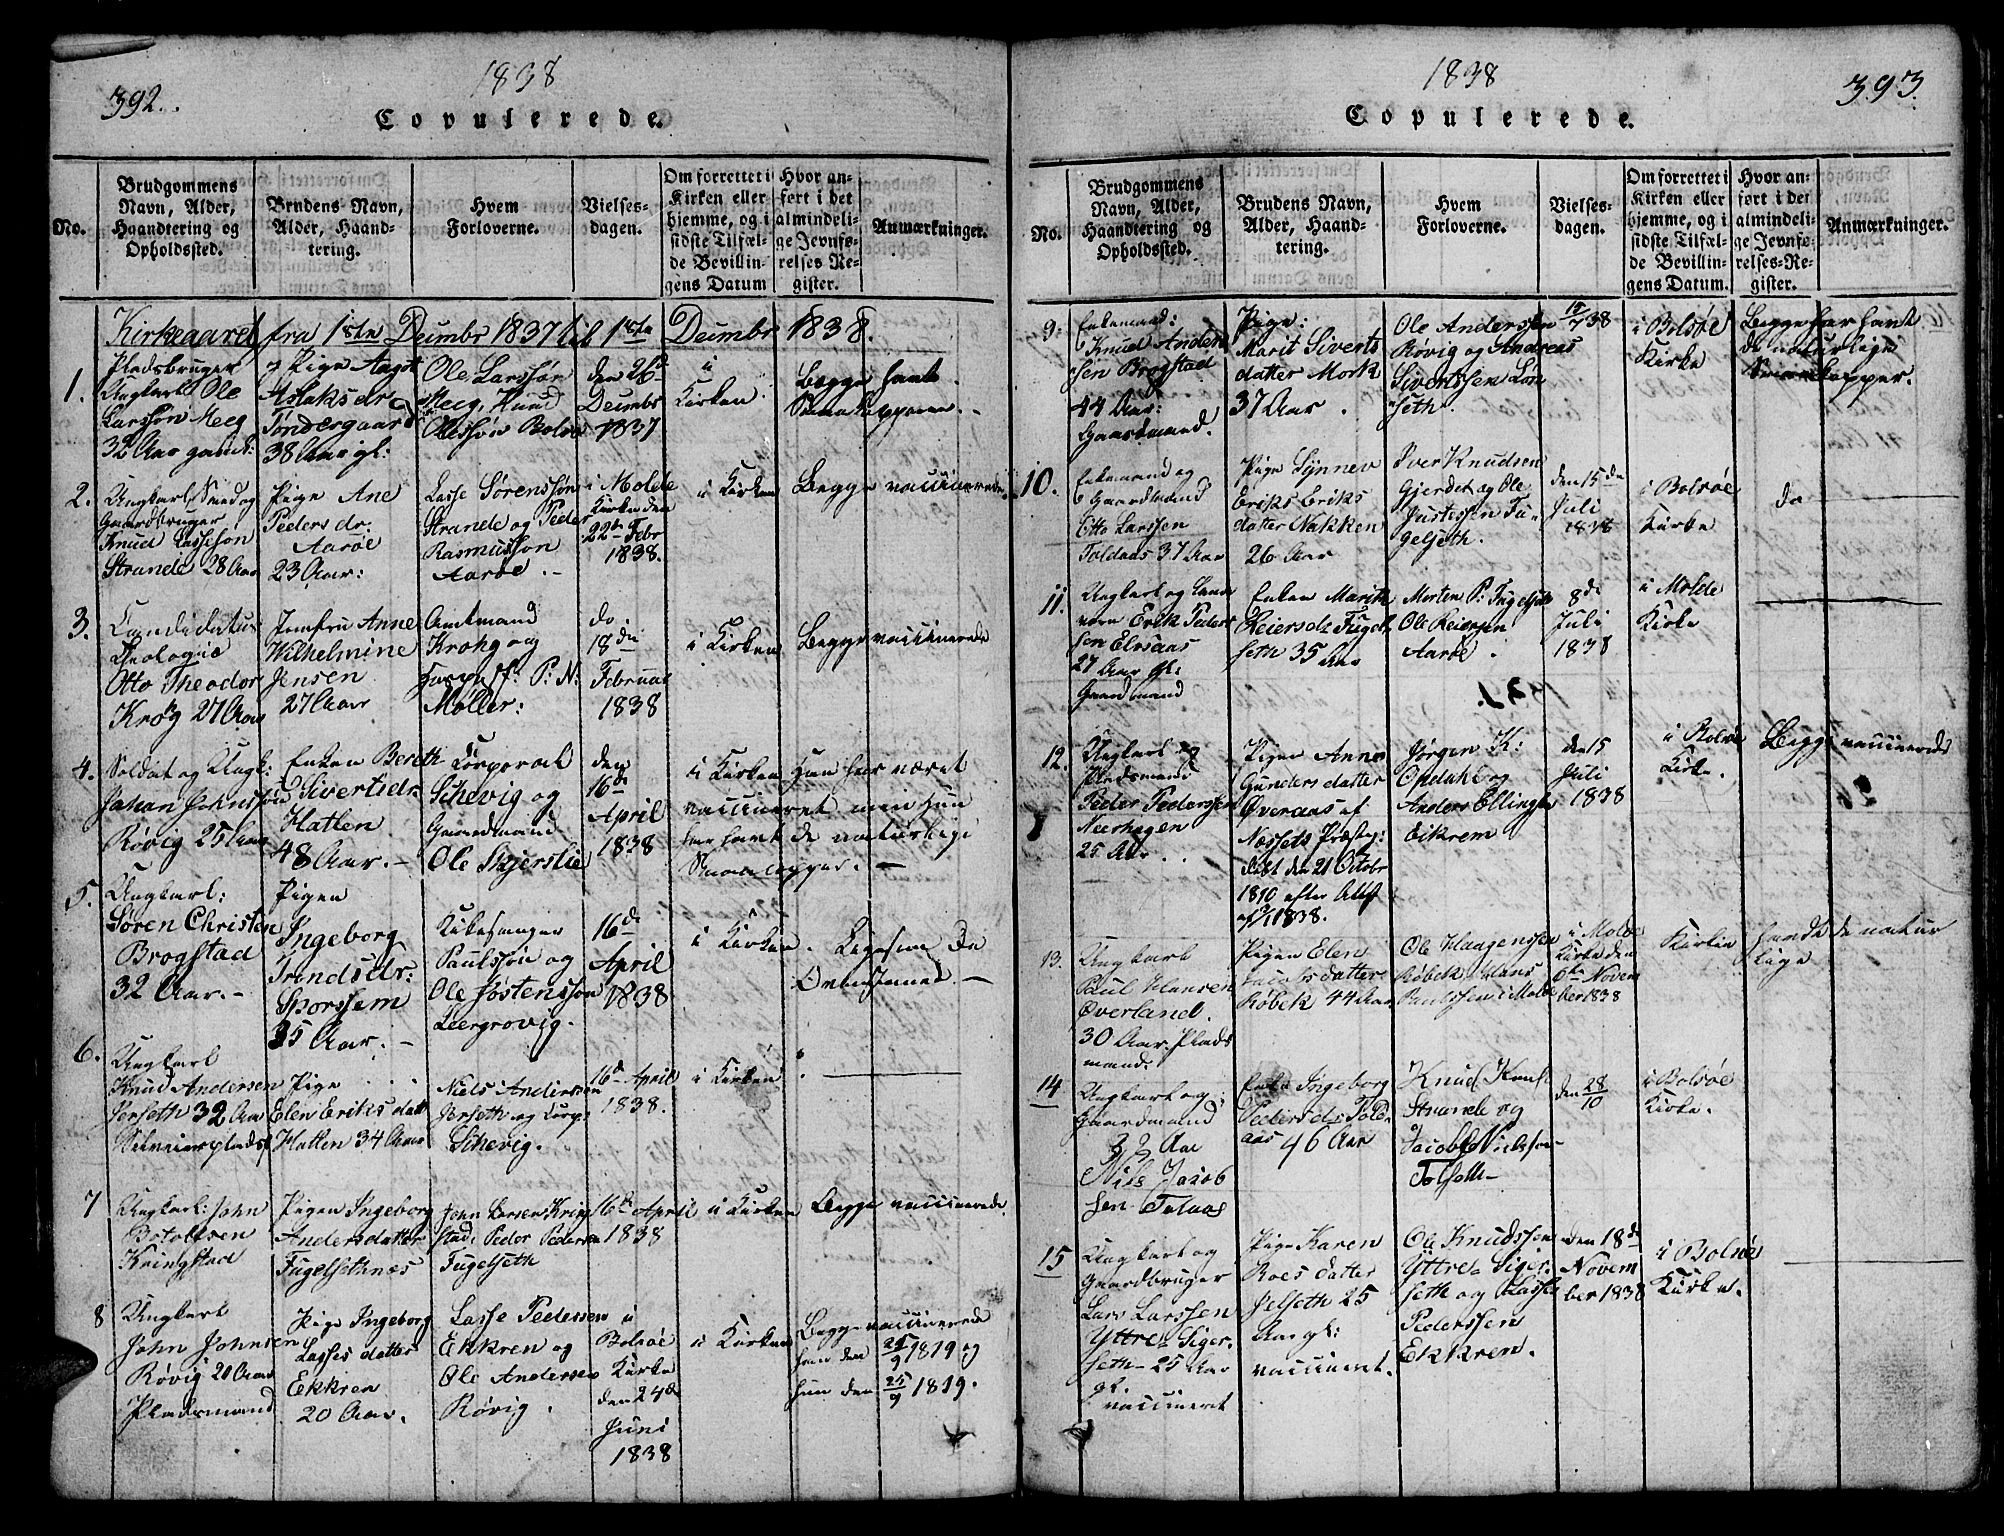 392.
1838
Copulerede.
No.
Brudgommens
Navn, Alder,
Haandtering og
Opholdssted.
Brudens Navn,
Alder, Haand-
tering.
Hvem
Forloverne.
Vielses-
dagen.
Om forrettet i
Kirken eller
hjemme, og i
sidste Tilfæl-
de Bevillin-
gens Datum
Hvor an-
ført i det
almindeli-
ge Jevnfø-
relses-Re-
gister.
Anmærkninger.
Kirkeaaret fra 1ste Decembr 1837 til 1ste Decembr 1838.
1.
Pladsbruger
Ungkarl Ole
Larssøn Meeg
32 Aar gaml:
Pige Aagot
Aslaksdr
Tøndergaard
38 Aar gl:
Ole Larssøn
Meeg, Knud
Olessøn Bolsø
den 26d
Decembr
1837
i
Kirken
Begge havt
2.
Ungkarl
Gaardbruger
Knud Lassesøn
Strande 28 Aar
Pige Ane
Peders dr.
Aarøe
23 Aar:
Lasse Sørenssøn
Strande og Peder
Rasmussøn
Aarøe.
i Molde
Kirke den
22de Febr
1838.
i Kirken
Begge vaccinerede
3.
Candidatus
Theologiæ
Otto Theodor
Krog 27 Aar
Jomfru Anne
Wilhelmine
Jensen
27 Aar
Amtmand
Krohg og
P: N:
Møller:
do.
18de
Februar
1838
i Kirken
Begge vaccinerede
4.
Soldat og Ungk:
Johan Johnssøn
Røvig 25 Aar
Enken Bereth
Sivertsdr
Hatlen
48 Aar.
Corporal
Schevig og
Gaardmand
Ole Skjerslie
den
16de
April
1838
i Kirken
Han har været
vaccineret men hun
har havt de naturlige
5.
Ungkarl:
Søren Christen
Brogstad
32 Aar.
Pigen
Ingeborg
Trondsdr:
Sporssem
35 Aar.
Kirkesanger
Paulssøn og
Ole Jostenssøn
Leergrovig.
16de
April
1838
i Kirken.
Ligesom De
6.
Ungkarl
Knud Andersen
Jerseth 32 Aar
Pige
Elen Eriks datt
Hatlen 34 Aar
Niels Andersen
Jerseth og Corp:
Schevig.
16de April
1838.
i Kirken
7
Ungkarl: John
Botolfsen
Kringstad
Pigen Ingeborg
Andersdatter
Fugelsethnes
John Larsen Kring
stad, Peder Pedersen
Fugelseth
16de April
1838
i Kirken
Begge vaccinerede
8
Ungkarl
John Johnsen
Røvig 20 Aar
Pladsmand
Pige Ingeborg
Lasses datter
Ekkren
20 Aar.
Lasse Pedersen
Ekkren og
Ole Andersen
Røvig.
i
Bolsøe
Kirke
den 24de
Juni
1838
i Kirken
Begge vaccinerede
han den 25/9 1819 og
hun den 25/9 1819.
1838
393.
Copulerede.
No.
Brudgommens
Navn, Alder,
Haandtering og
Opholdssted.
Brudens Navn,
Alder, Haand-
tering.
Hvem
Forloverne.
Vielses-
dagen.
Om forrettet i
Kirken eller
hjemme, og i
sidste Tilfæl-
de Bevillin-
gens Datum.
Hvor an-
ført i det
almindeli-
ge Jevnfø-
relses-Re-
gister.
Anmærkninger.
9.
Enkemand:
Knud Anders
sen Brogstad
44 Aar:
Gaardmand.
Pige:
Marit Siverts
datter Mork
37 Aar.
Ole Anderssen
Røvig og Andreas
Sivertssen Løn
seth.
15/7 38
i Bolsøe
Kirke
Begge har havt
de naturlige
10.
Enkemand og
Gaardmand
Otto Larssen
Toldaas 37 Aar
Pige Synnev
Eriks Eriks
datter Nakken
26 Aar
Iver Knudsen
Gjerdet og Ole
Justessen Fu-
gelseth.
den 15de
Juli
1838
i Bolsøe
Kirke
do
11.
Ungkarl og
Erik Peder
sen Elsaas
27 Aar gl:
Gaardmand
Enken Marith
Reiersdr Fugel
seth 35 Aar
Morten P: Fugelseth
Ole Reiersen
Aarøe.
8de
Juli
1838
i Molde
Kirke
12.
Ungkarl og
Pladsmand
Peder Pederssen
Neerhagen
25 Aar.
Pigen Anne
Gunders datter
Øveraas af
Nessets Præstg:
Døbt den 21 Octobr
1810 efter Attst
1838.
Jørgen K:
Opdahl og
Anders Ellings
Eikrem
den 15
Juli
1838
i Bolsøe
Kirke.
Begge vaccinerede
13.
Ungkarl
Poul Hansen
Øverland.
30 Aar. Plads
mand.
Pigen Elen
datter
Røbek 44 Aar
Ole Haagenssen
Røbek Hans
Paulssen i Molde
i Molde
Kirke den
6te Novem
ber 1838
Kirken
havt de natur
lige
14
Ungkarl og
Gaardmand
33 Aar
Niels Jacob
sen Tolaas
Enke Ingeborg
Pedersdr Told
aas 46 Aar
Knud Knuds
Strande og
Jacob Nielssen
Tolseth
den 28/10
i Bolsøe
Kirke.
15
Ungkarl og
Gaardbruger
Lars Larssen
Yttre Siger
seth 25 Aar
gl.
vaccineret
Pige Karen
Roes datter
Jelseth 25
Aar gl:
vaccineret.
Ole Knudssen
Yttre Siger
seth og Lasse
Pederssen
Ekkren.
den 18de
Novem
ber 1838
i Bolsøe
Kirke.